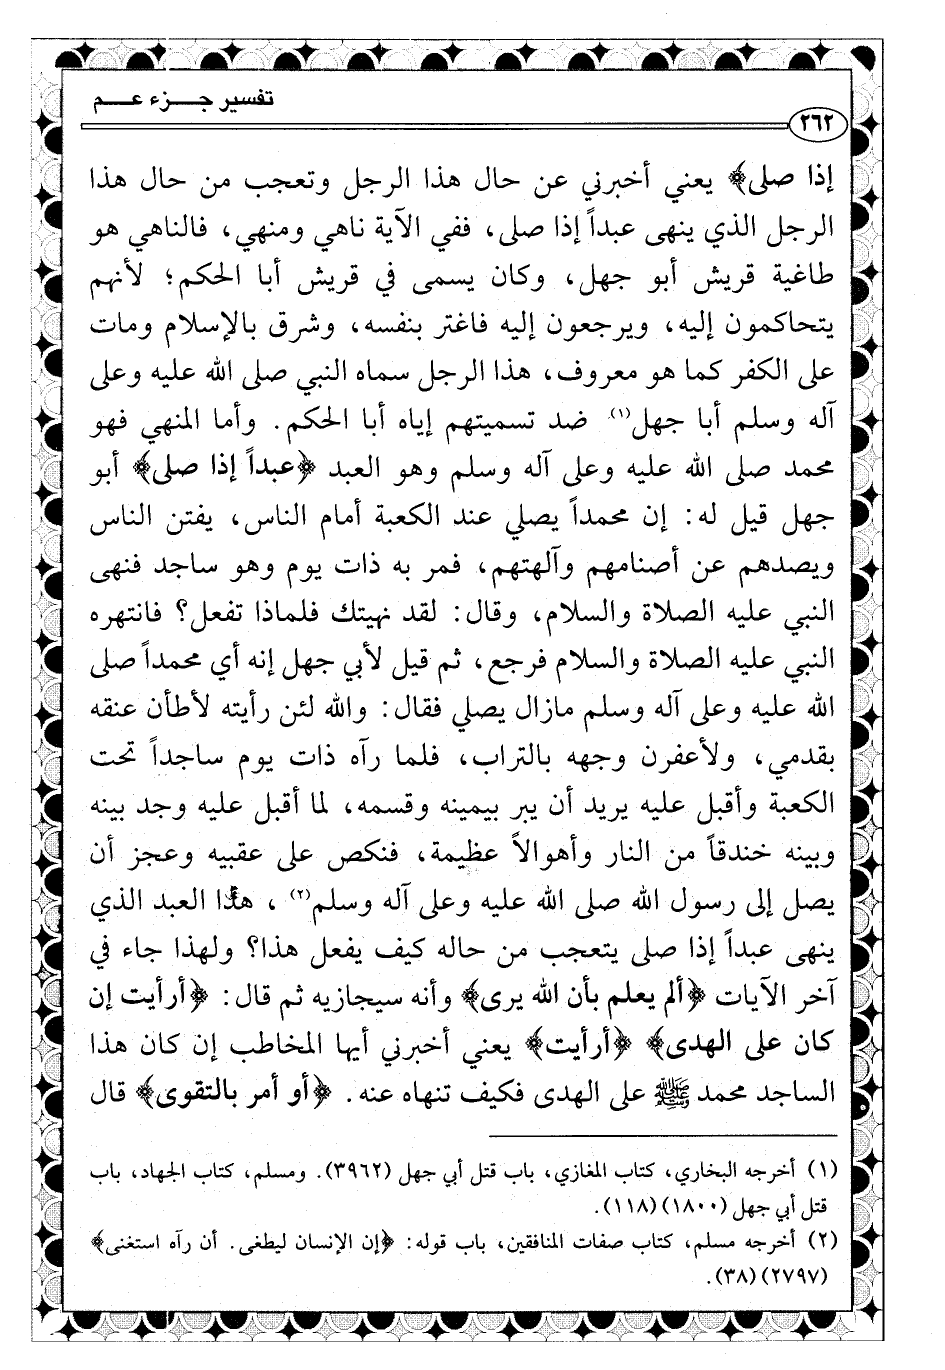 تفسير جـــزء عـــم
٢٦٢
إذا صلى﴾ يعني أخبرني عن حال هذا الرجل وتعجب من حال هذا
الرجل الذي ينهى عبداً إذا صلى، ففي الآية ناهي ومنهي، فالناهي هو
طاغية قريش أبو جهل، وكان يسمى في قريش أبا الحكم؛ لأنهم
يتحاكمون إليه، ويرجعون إليه فاغتر بنفسه، وشرق بالإسلام ومات
على الكفر كما هو معروف، هذا الرجل سماه النبي صلى الله عليه وعلى
آله وسلم أبا جهل(١). ضد تسميتهم إياه أبا الحكم. وأما المنهي فهو
محمد صلى الله عليه وعلى آله وسلم وهو العبد ﴿عبداً إذا صلى﴾ أبو
جهل قيل له: إن محمداً يصلي عند الكعبة أمام الناس، يفتن الناس
ويصدهم عن أصنامهم وآلهتهم، فمر به ذات يوم وهو ساجد فنهى
النبي عليه الصلاة والسلام، وقال: لقد نهيتك فلماذا تفعل؟ فانتهره
النبي عليه الصلاة والسلام فرجع، ثم قيل لأبي جهل إنه أي محمداً صلى
الله عليه وعلى آله وسلم مازال يصلي فقال: والله لئن رأيته لأطأن عنقه
بقدمي، ولأعفرن وجهه بالتراب، فلما رآه ذات يوم ساجداً تحت
الكعبة وأقبل عليه يريد أن يبر بيمينه وقسمه، لما أقبل عليه وجد بينه
وبينه خندقاً من النار وأهوالاً عظيمة، فنكص على عقبيه وعجز أن
يصل إلى رسول الله صلى الله عليه وعلى آله وسلم(٢)، هذا العبد الذي
ينهى عبداً إذا صلى يتعجب من حاله كيف يفعل هذا؟ ولهذا جاء في
آخر الآيات ﴿ألم يعلم بأن الله يرى﴾ وأنه سيجازيه ثم قال: ﴿أرأيت إن
كان على الهدى﴾ ﴿أرأيت﴾ يعني أخبرني أيها المخاطب إن كان هذا
الساجد محمد ﷺ على الهدى فكيف تنهاه عنه. ﴿أو أمر بالتقوى﴾ قال
(١) أخرجه البخاري، كتاب المغازي، باب قتل أبي جهل (٣٩٦٢). ومسلم، كتاب الجهاد، باب
قتل أبي جهل (١٨٠٠) (١١٨).
(٢) أخرجه مسلم، كتاب صفات المنافقين، باب قوله: ﴿إن الإنسان ليطغى. أن رآه استغنى﴾
(٢٧٩٧) (٣٨).